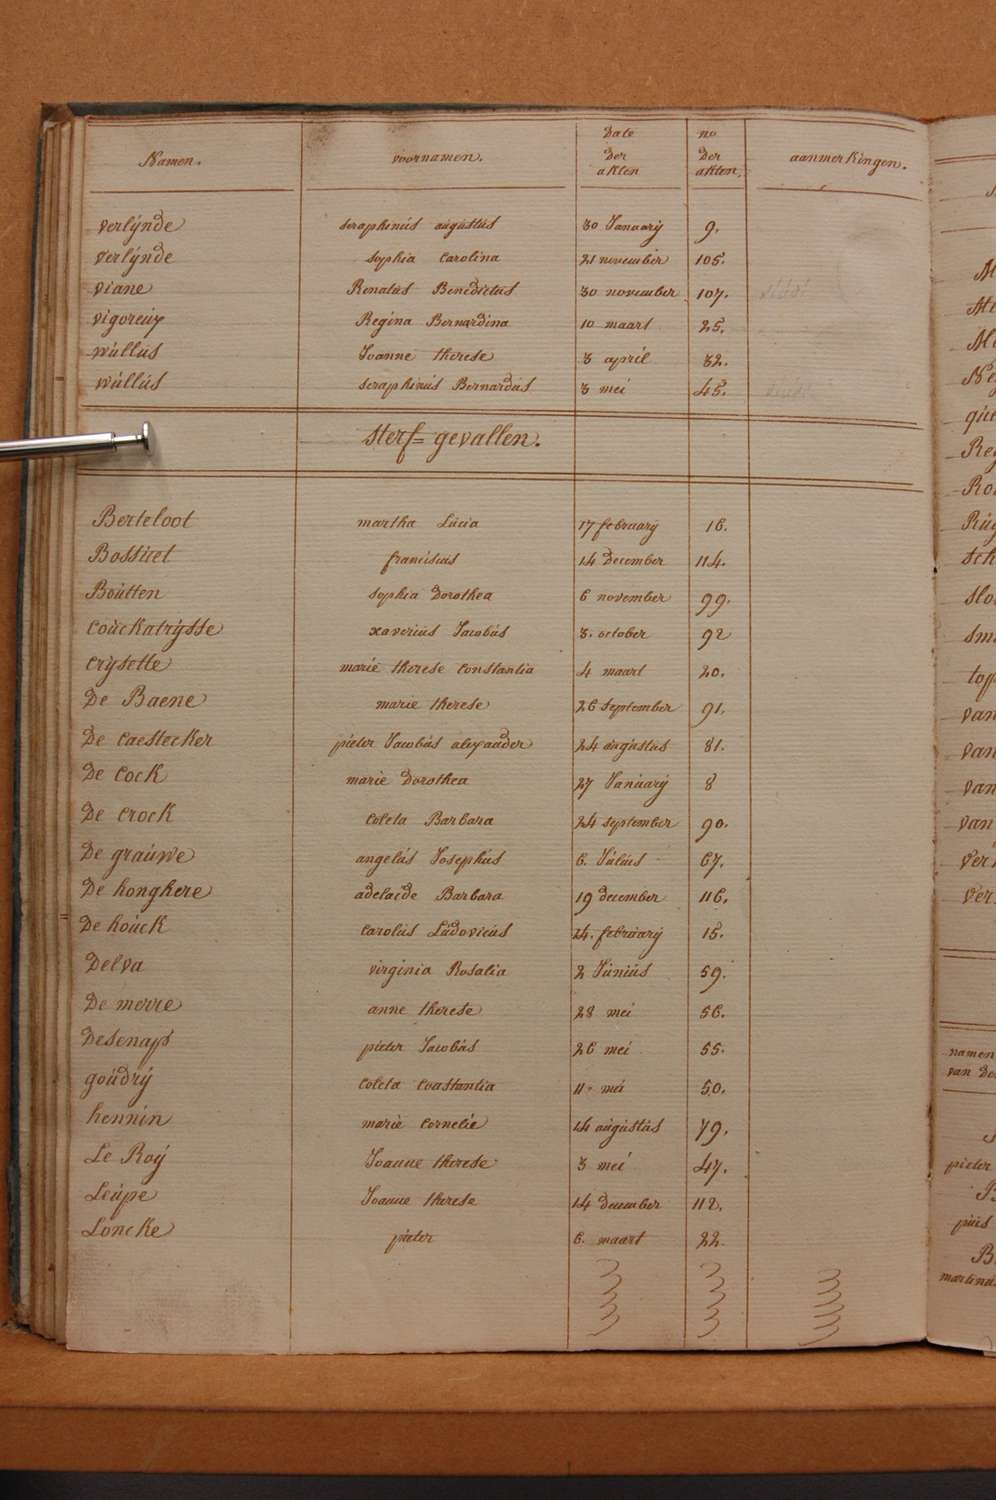 Namen. voornamen. Date Der akten no Der akten. aanmerkingen.
verlÿnde seraphinús aúgústús 30 Januarÿ 9.
verlÿnde sophia carolina 21 november 105.
viane Renatús Benedictús 30 november 107.
vigoreux Regina Bernardina 10 maart 25.
wúllús Joanne therese 3 april 32.
wúllús seraphinús Bernardús 3 mei 45.
sterf= gevallen.
Berteloot martha Lúcia 17 februarÿ 16.
Bossúet franciscus 14 December 114.
Boútten sophia Dorothea 6 november 99.
coúckatrÿsse xaveriús Jacobús 3. october 92
crÿsette marie therese constantia 4 maart 20.
De Baene marie therese 26 september 91.
De caestecker pieter Jacobús alexander 24 aúgústús 81.
De cock marie Dorothea 27 Janúarÿ 8
De crock coleta Barbara 24 september 90.
De graúwe angelús Josephús 6. Július 67.
De honghere adelaïde Barbara 19 december 116.
De hoúck carolús Lúdovicús 24. februarÿ 15.
Delva virginia Rosalia 2 Júniús 59.
De merre anne therese 28 mei 56.
Desenaps pieter Jacobús 26 mei 55.
goúdrÿ coleta constantia 11 mei 50.
hennin marie cornelie 14 aúgústús 79.
Le Roÿ Joanne therese 3 mei 47.
Leúpe Joanne therese 14 december 112.
Loncke pieter 6. maart 22.
namen
van De
pieter
piús
martinús